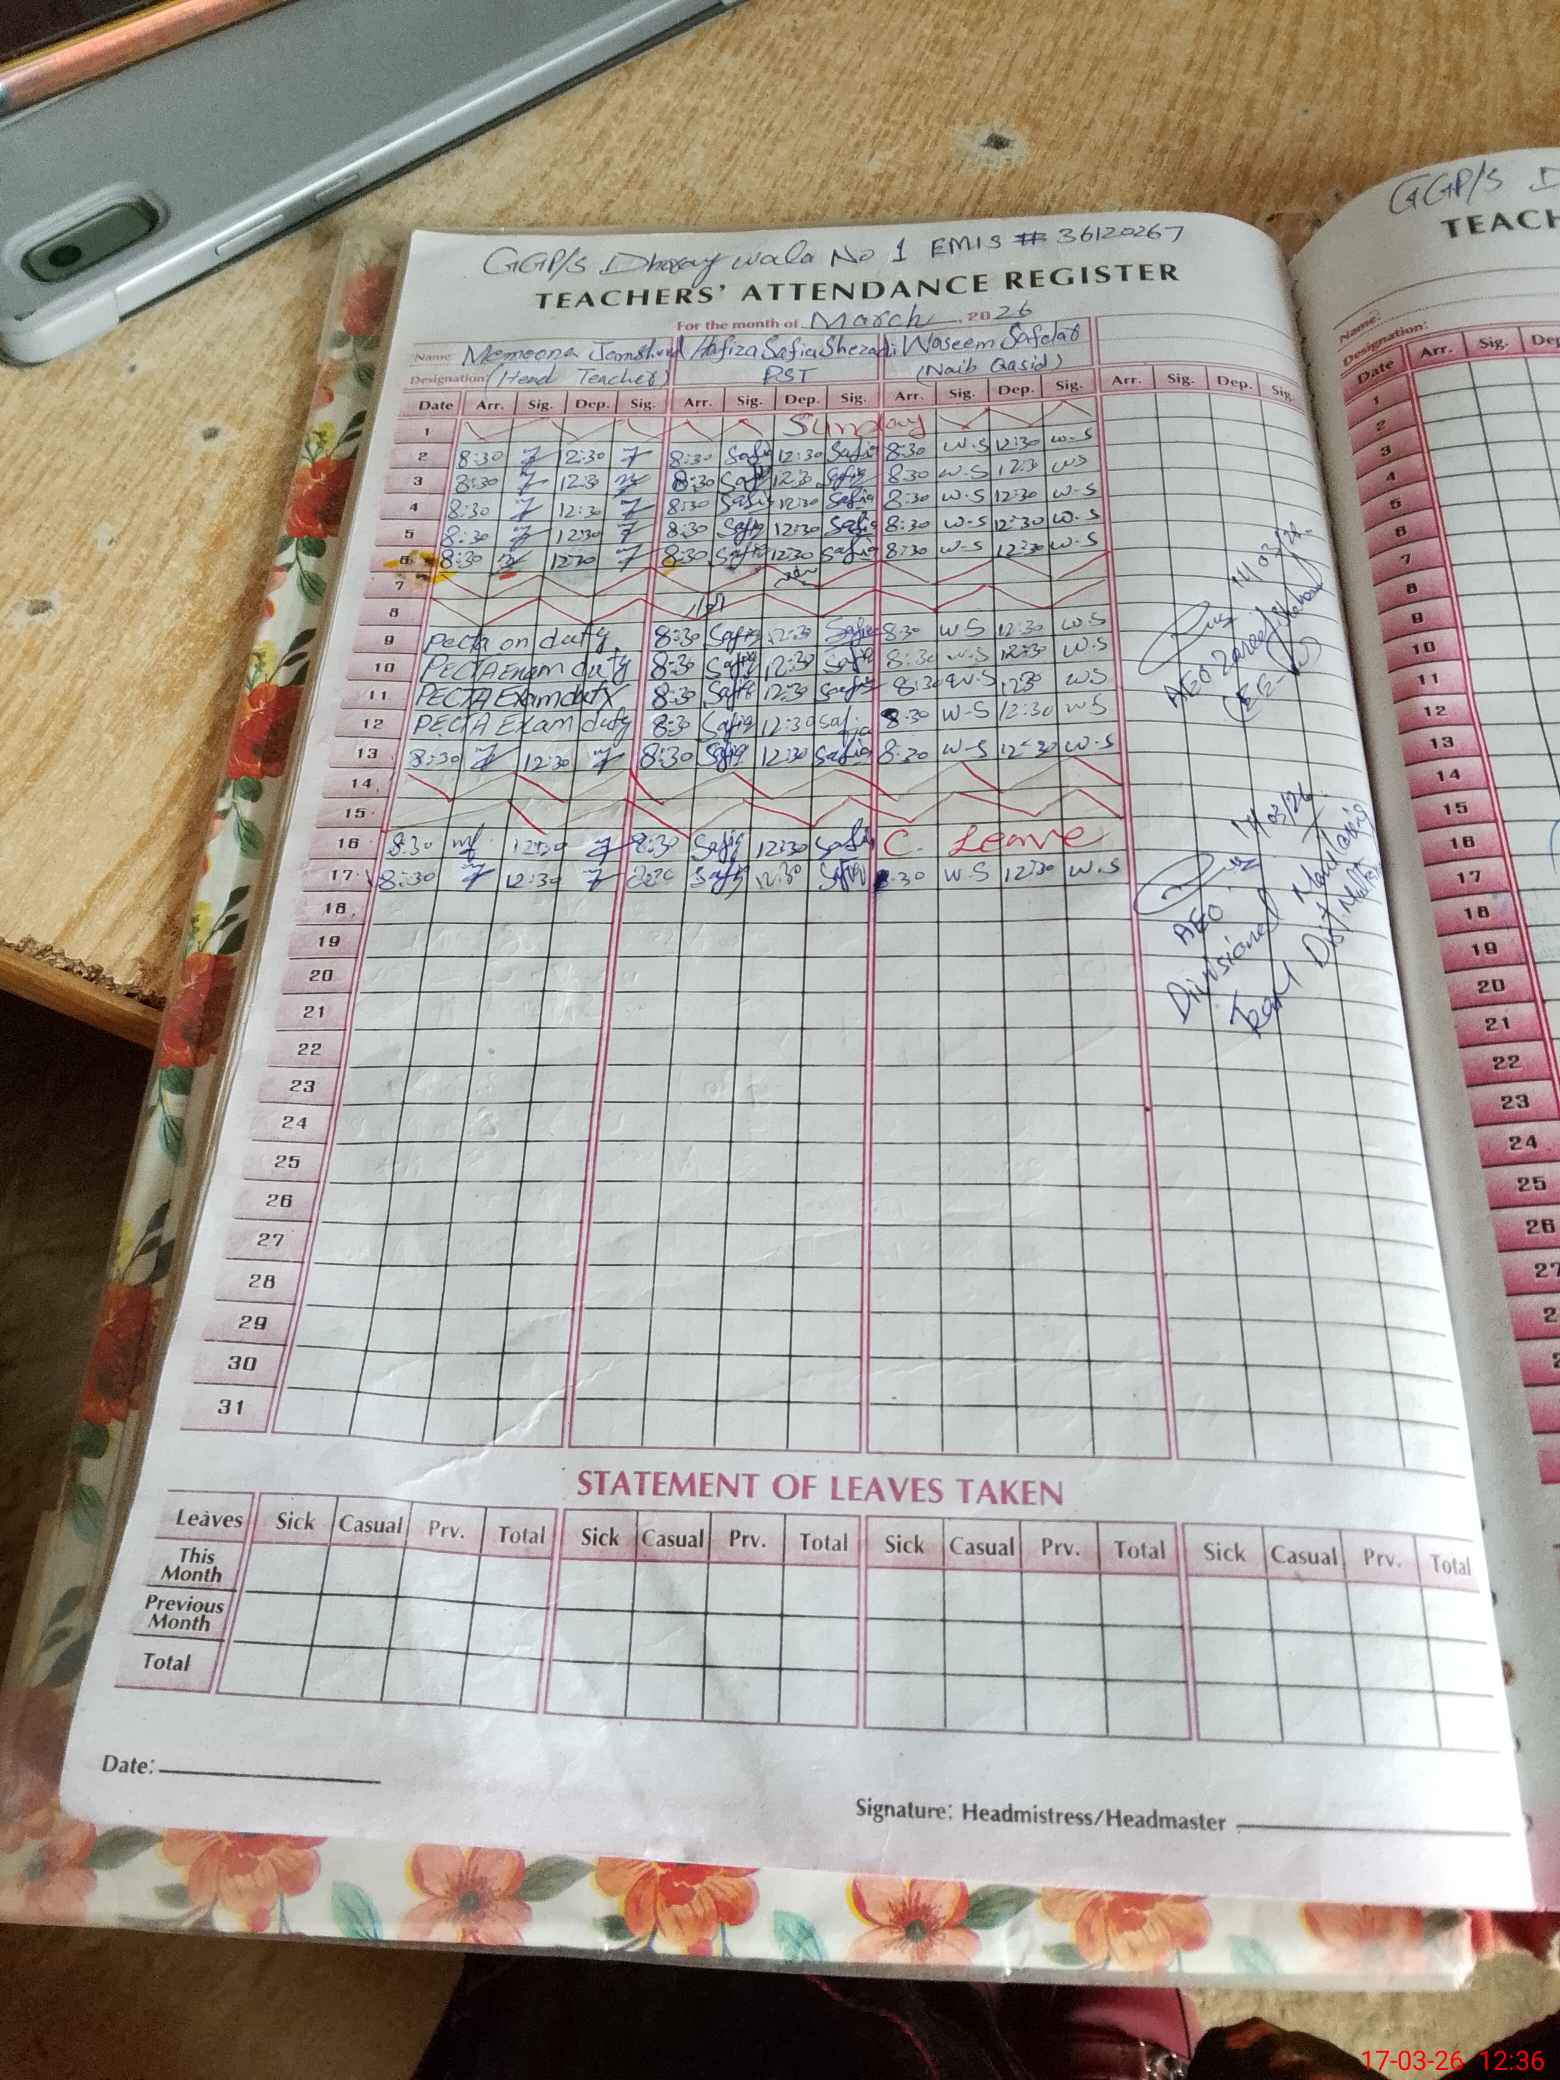 GGP/S Dhoray wala No 1 EMIS # 36120267
TEACHERS' ATTENDANCE REGISTER
For the month of March 2026
Name Memoona Jamshed Hafiza Safia Shezadi Waseem Safdar
Designation (Head Teacher) PST (Naib Qasid)
Date Arr. Sig. Dep. Sig. Arr. Sig. Dep. Sig. Arr. Sig. Dep. Sig. Arr. Sig. Dep. Sig.
1 Sunday
2 8:30 2:30 8:30 Safia 12:30 Safia 8:30 W.S 12:30 W.S
3 8:30 12:30 8:30 Safia 12:30 Safia 8:30 W.S 12:30 WS
4 8:30 12:30 8:30 Safia 12:30 Safia 8:30 W.S 12:30 W.S
5 8:30 12:30 8:30 Safia 12:30 Safia 8:30 W.S 12:30 W.S
6 8:30 12:30 8:30 Safia 12:30 Safia 8:30 W.S 12:30 W.S
7
8
9 Pecta on duty 8:30 Safia 12:30 Safia 8:30 W.S 12:30 W.S
10 PECTA Exam duty 8:30 Safia 12:30 Safia 8:30 W.S 12:30 W.S
11 PECTA Exam duty 8:30 Safia 12:30 Safia 8:30 W.S 12:30 WS
12 PECTA Exam duty 8:30 Safia 12:30 Safia 8:30 W-S 12:30 WS
13 8:30 12:30 8:30 Safia 12:30 Safia 8:30 W-S 12:30 W.S
14
15
16 8:30 12:30 8:30 Safia 12:30 Safia C. Leave
17 8:30 12:30 8:30 Safia 12:30 Safia 8:30 W.S 12:30 W.S
18
19
20
21
22
23
24
25
26
27
28
29
30
31
AEO
AEO
Divisional
Team Dist. Multan
STATEMENT OF LEAVES TAKEN
Leaves Sick Casual Prv. Total Sick Casual Prv. Total Sick Casual Prv. Total Sick Casual Prv. Total
This Month
Previous Month
Total
Date:
Signature: Headmistress/Headmaster
GGP/S D
TEACH
Name:
Designation:
Date Arr. Sig. Dep
1
2
3
4
5
6
7
8
9
10
11
12
13
14
15
16
17
18
19
20
21
22
23
24
25
26
27
17-03-26 12:36